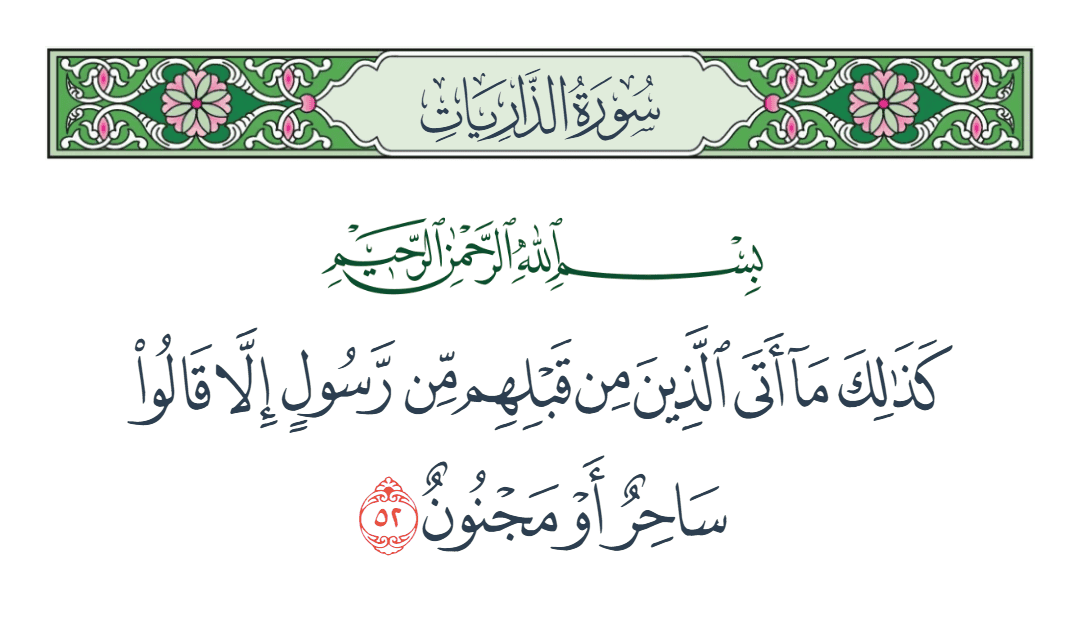 سُورَةُ الذَّارِيَاتِ
بِسْمِ ٱللَّهِ ٱلرَّحْمَٰنِ ٱلرَّحِيمِ
كَذَٰلِكَ مَآ أَتَى ٱلَّذِينَ مِن قَبْلِهِم مِّن رَّسُولٍ إِلَّا قَالُوا۟
سَاحِرٌ أَوْ مَجْنُونٌ ٥٢